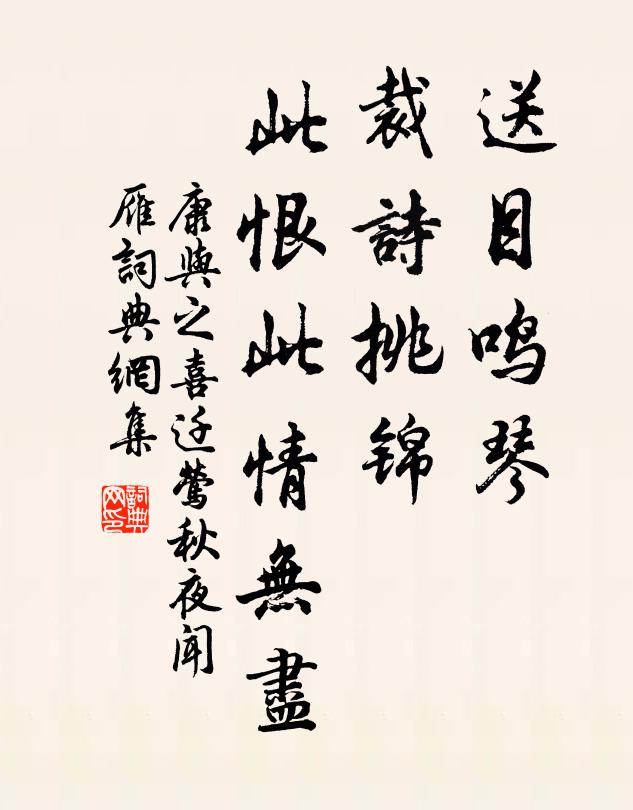 送目鸣琴
裁詩挑锦
此恨此情無盡
康與之喜迁鶯秋夜闻
雁詞典網集
詞典网印